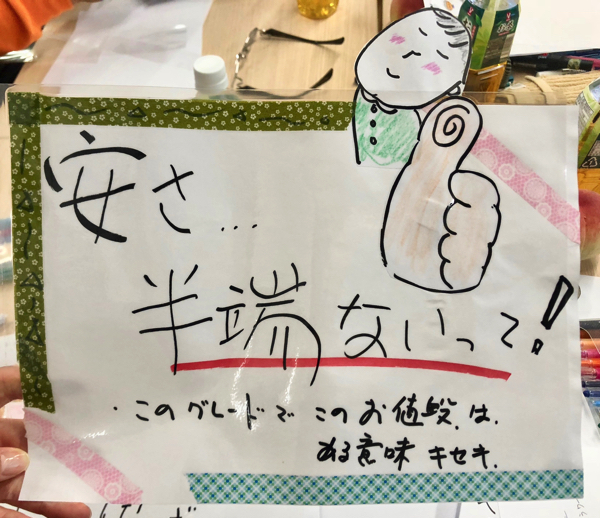 安さ...
半端ないって!
・このグレードで このお値段は、
ある意味 キセキ.